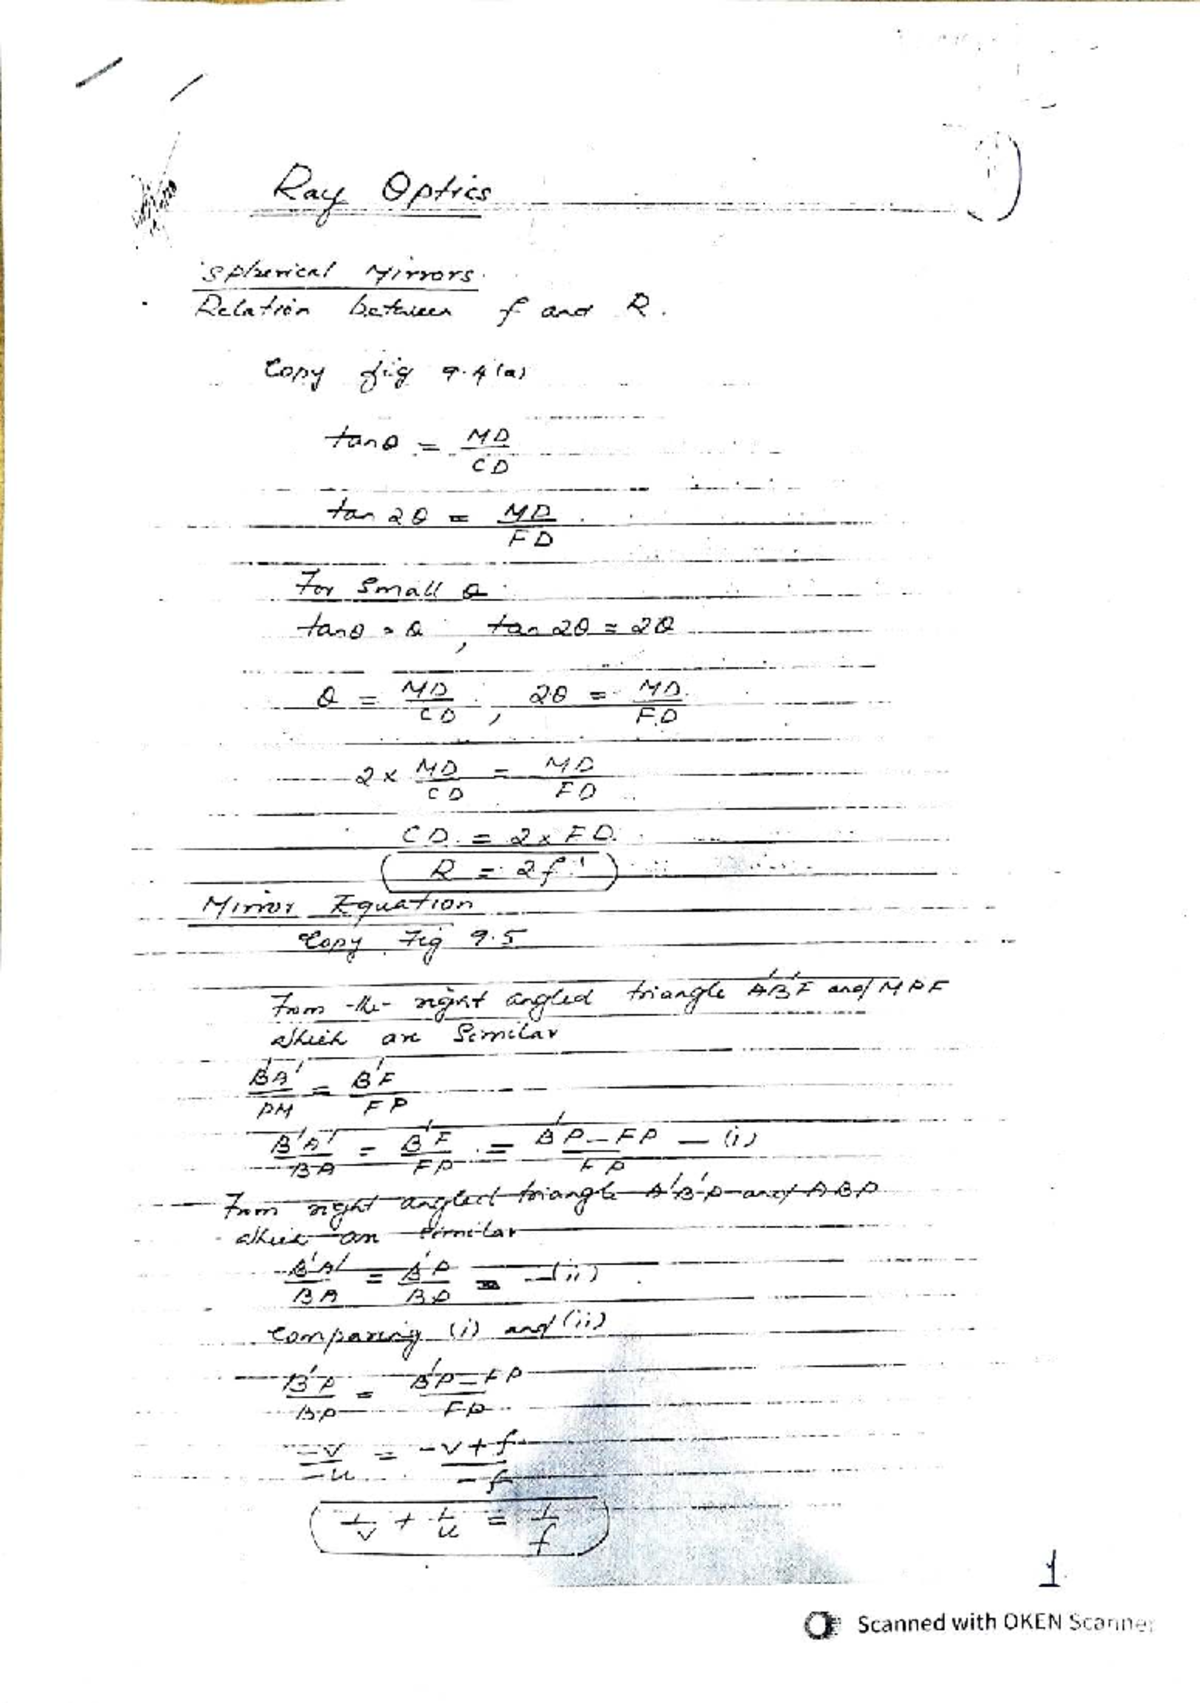 Ray Optics
Spherical Mirrors.
Relation between f and R.
Copy fig 9.4(a)
tanθ = MD/CD
tan 2θ = MD/FD
For Small θ
tanθ = θ , tan 2θ = 2θ
θ = MD/CD , 2θ = MD/FD
2 × MD/CD = MD/FD
CD = 2 × FD
R = 2f
Mirror Equation
Copy Fig 9.5
From the right angled triangle A'B'F and MPF
which are Similar
B'A'/PM = B'F/FP
B'A'/BA = B'F/FP = B'P - FP/FP — (i)
From right angled triangle A'B'P and ABP
which are similar
B'A'/BA = B'P/BP — (ii)
Comparing (i) and (ii)
B'P/BP = B'P - FP/FP
-v/-u = -v + f/-f
1/v + 1/u = 1/f
1
Scanned with OKEN Scanner